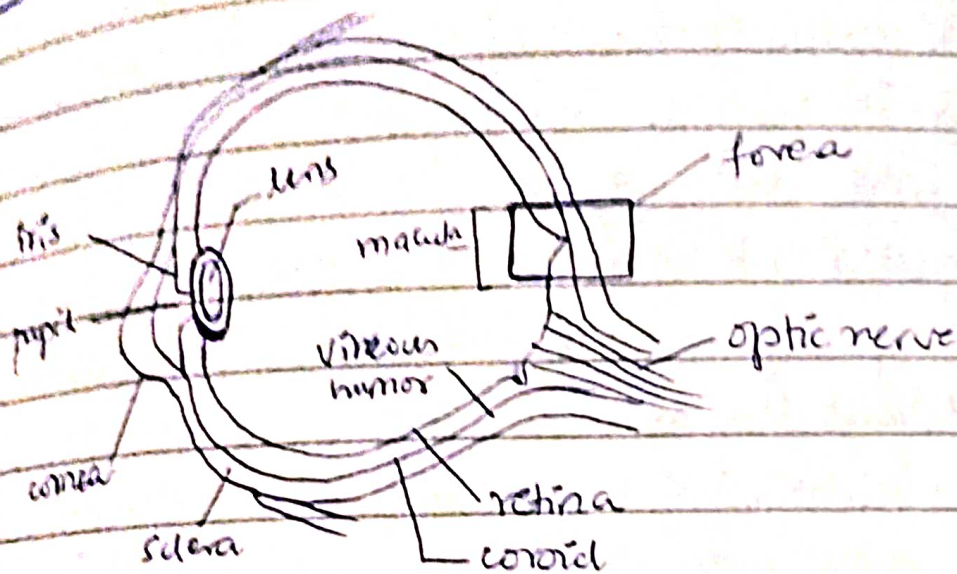 fovea
lens
iris
macula
pupil
optic nerve
vitreous
humor
cornea
retina
sclera
coroid